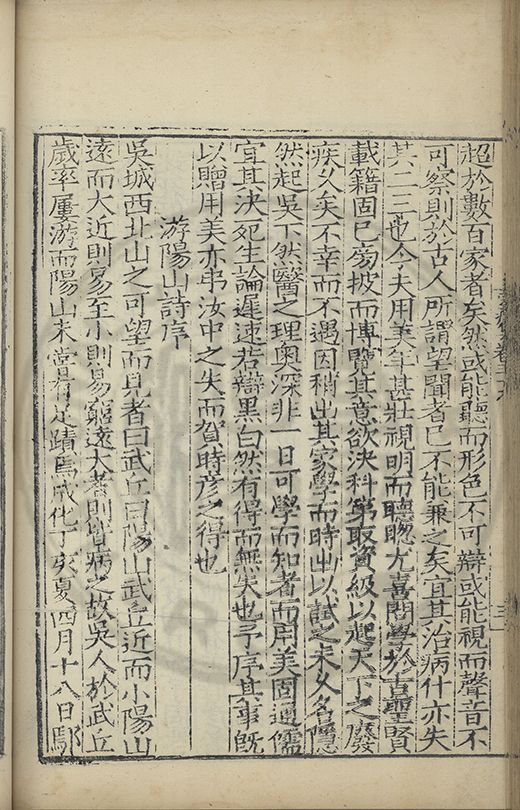 超於數百家者矣然或能聽而形色不可辯或能視而聲音不
可察則於古人所謂望聞者已不能兼之矣宜其治病什亦失
其二三也今夫用美年甚壯視明而聽聦尤喜問學於古聖賢
載籍固已旁披而博覽其意欲決科第取資級以起天下之廢
疾久矣不幸而不遇因稍出其家學而時出以試之未久名隱
然起吳下然醫之理奧深非一日可學而知者而用美固通儒
宜其決死生論遲速若辯黑白然有得而無失也予序其事旣
以贈用美亦弔汝中之失而賀時彥之得也
游陽山詩序
吳城西北山之可望而見者曰武丘曰陽山武丘近而小陽山
遠而大近則易至小則易窮遠大者則皆病之故吳人於武丘
歲率屢游而陽山未嘗有足蹟焉成化丁亥夏四月十八日鄢